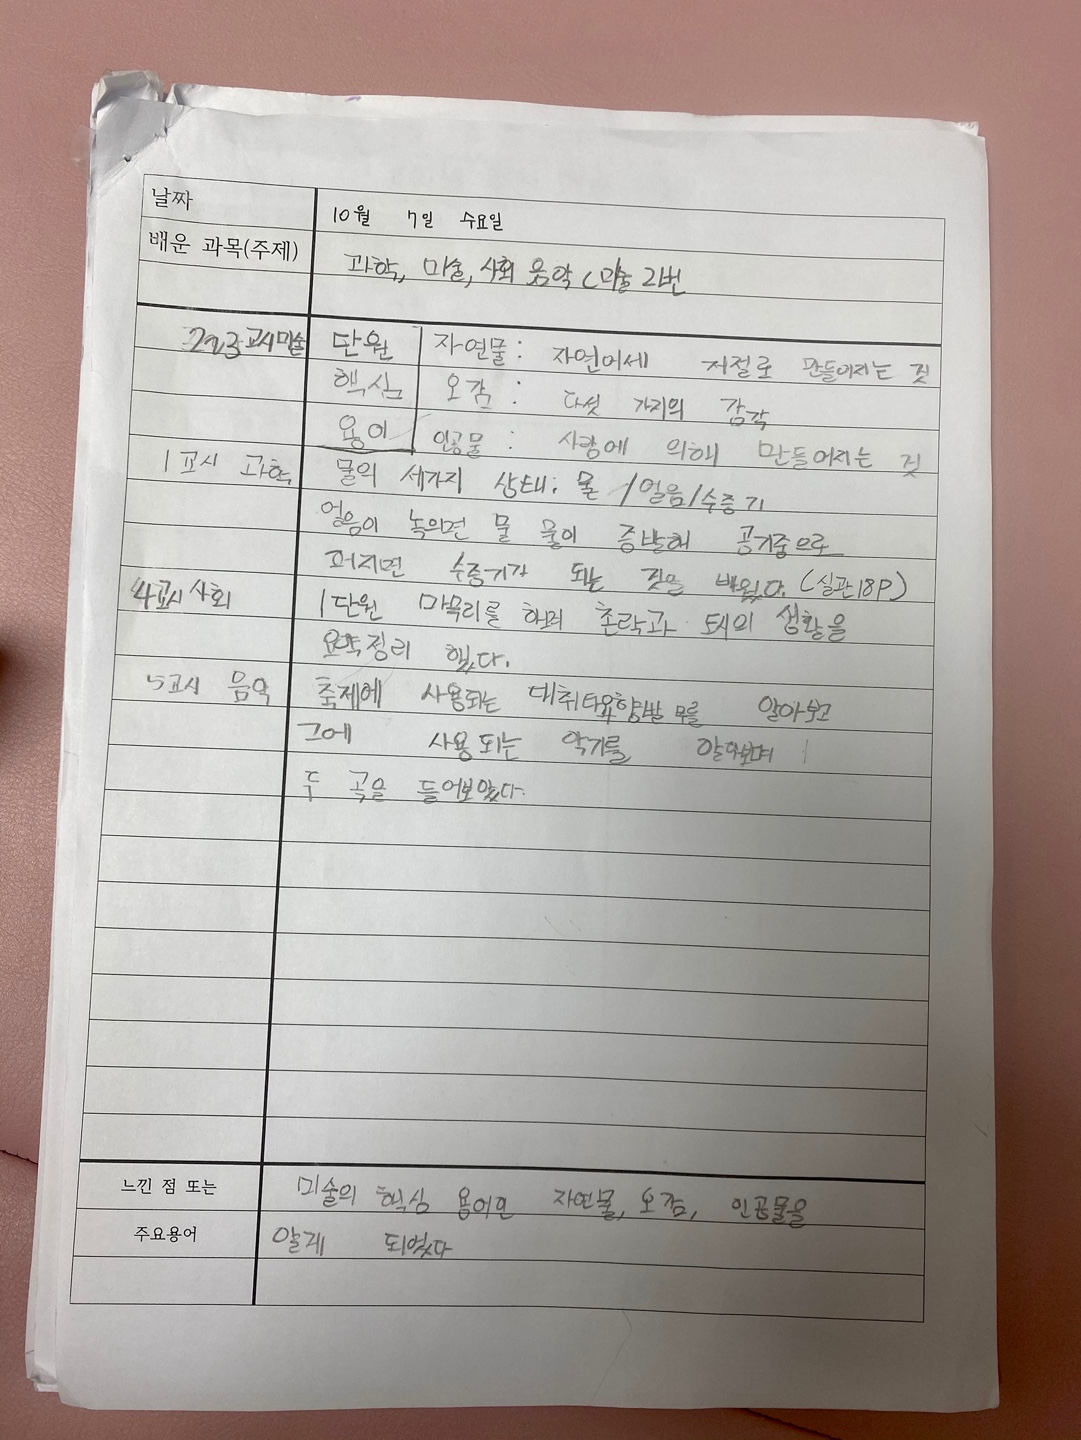 날짜 10월 7일 수요일
배운 과목(주제) 과학, 미술, 사회 음악 (미술 2번
2고3교시미술 단원 자연물: 자연에세 저절로 만들어지는 것
핵심 오감: 다섯 가지의 감각
용어 인공물: 사람에 의해 만들어지는 것
1교시 과학 물의 세가지 상태: 물/얼음/수증기
얼음이 녹의면 물 물이 증발해 공기중으로
퍼지면 수증기가 되는 것을 배웠다. (실관18P)
4교시 사회 1단원 마목리를 하며 촌락과 도시의 생황을
요약정리 했다.
5교시 음악 축제에 사용되는 대취타와향발무를 알아보고
그에 사용되는 악기를 알아보며
두 곡을 들어보았다.
느낀 점 또는 미술의 핵심 용어인 자연물, 오감, 인공물을
주요용어 알게 되었다